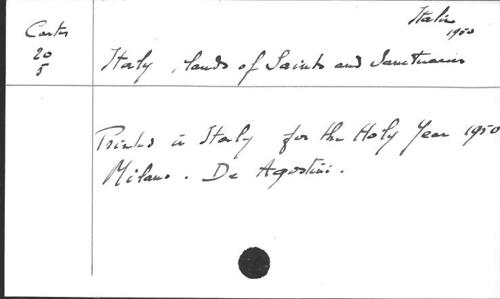 Italie
1950
Cartes
20
5
Italy, lands of Saints and Sanctuaries
Printed in Italy for the Holy Year 1950
Milano. De Agostini.